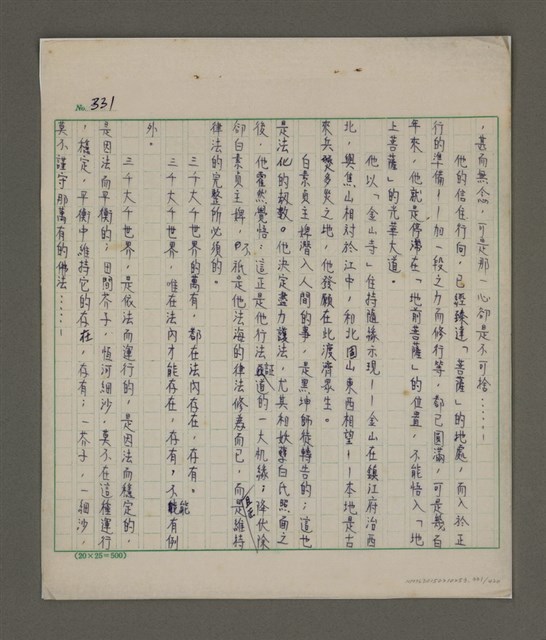 No. 331
，甚而無念，可是那一心卻是不可捨……！
他的信住行向，已經臻達「菩薩」的地處，而入於正
行的準備——加一段之力而修行等，都已圓滿，可是幾百
年來，他就是停滯在「地前菩薩」的位置，不能悟入「地
上菩薩」的光華大道。
他以「金山寺」住持隨緣示現——金山在鎮江府治西
北，與焦山相對於江中，和北固山東西相望——本地是古
來兵燹多災之地，他發願在此渡濟眾生。
白素貞主婢潛入人間的事，是黑坤師徒轉告的；這也
是法化的劫數。他決定盡力護法，尤其和妖孽白氏照面之
後，他霍然覺悟：這正是他行法證道的一大机緣；降伏除
卻白素貞主婢，不祇是他法海的律法修養而已，而且是維持
律法的完整所必須的。
三千大千世界的萬有，都在法內存在，存有。
三千大千世界，唯在法內才能存在，存有，不能有例
外。
三千大千世界，是依法而運行的，是因法而穩定的，
是因法而平衡的；田間芥子，恆河細沙，莫不在這種運行
，穩定，平衡中維持它的存在，存有；一芥子，一細沙，
莫不謹守那萬有的佛法……！
(20×25=500)